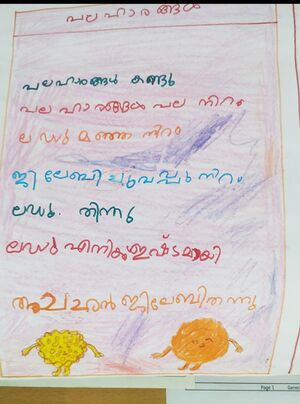 പലഹാരങ്ങൾ
പലഹാരങ്ങൾ കണ്ടു
പലഹാരങ്ങൾ പല നിറം
ലഡു മഞ്ഞ നിറം
ജിലേബി ചുവപ്പുനിറം
ലഡു. തിന്നു
ലഡു എനിക്കുഇഷ്ടമായി
അച്ഛൻ ജിലേബിതന്നു
Page 1